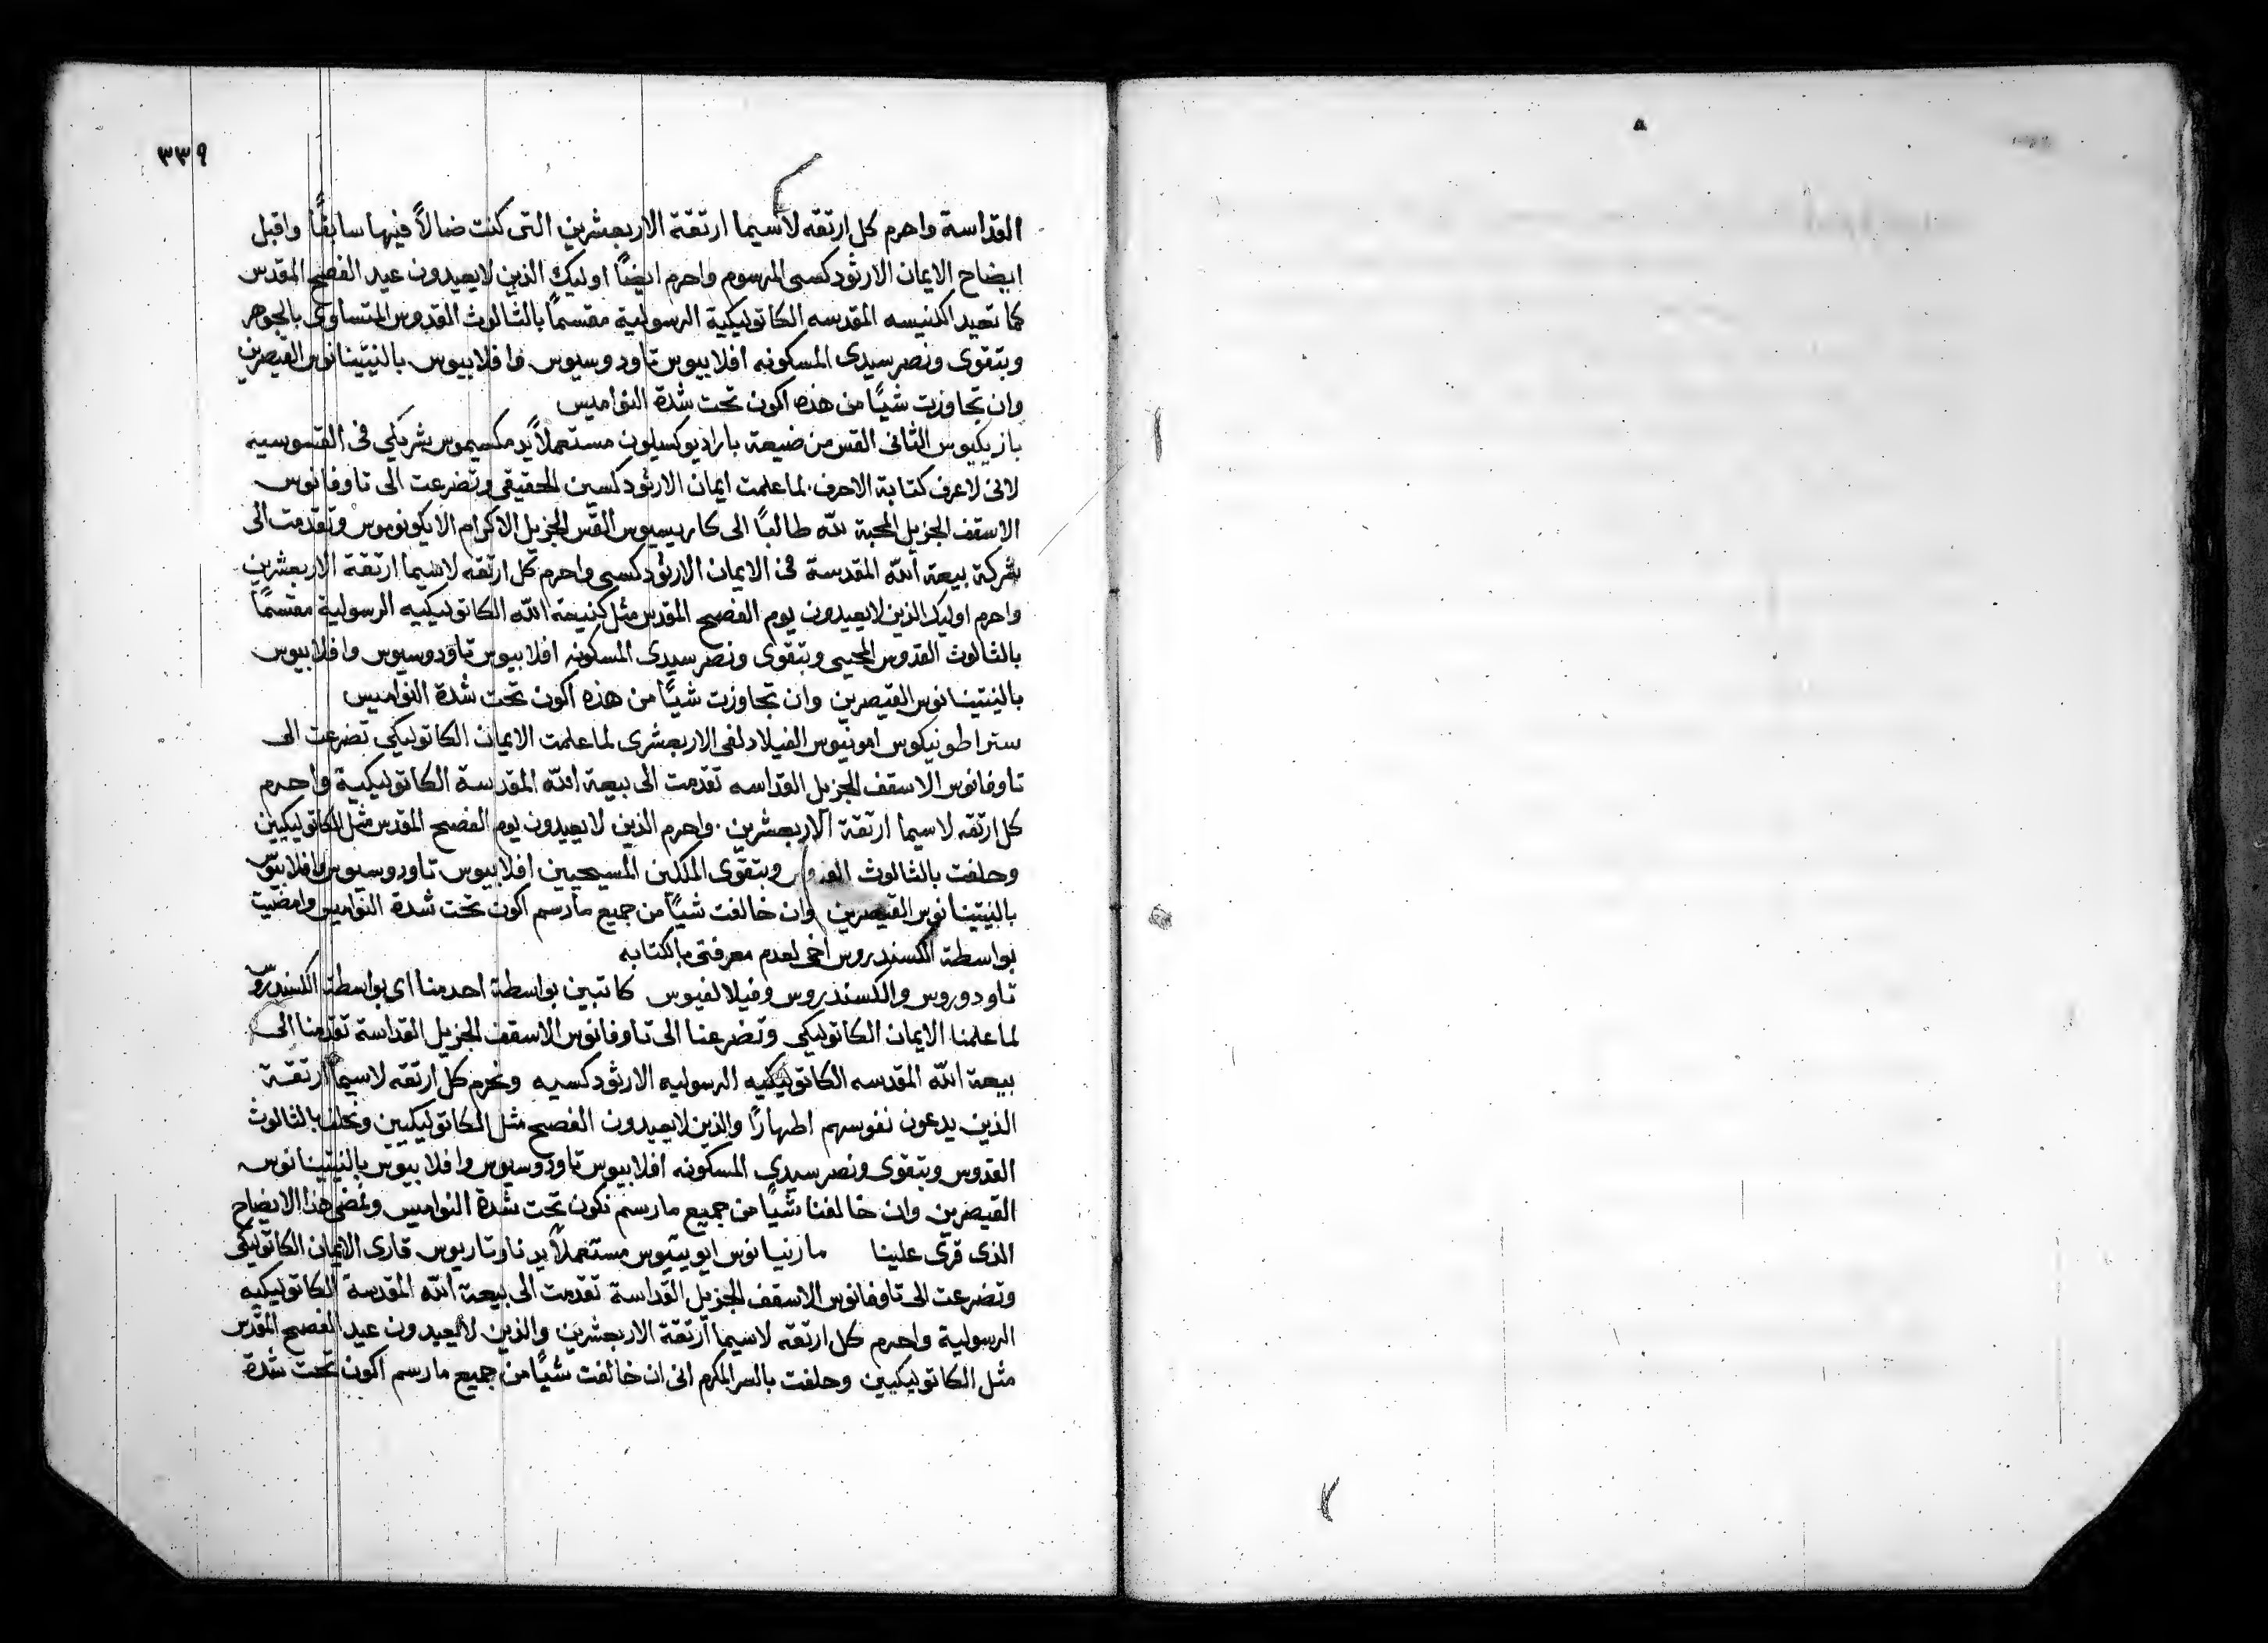 ٣٣٩
القداسة واحرم كل ارتقه لاسيما ارتقة الاربعشرين التى كنت ضالاً فيها سابقًا واقبل
ايضاح الايمان الارثودكسى المرسوم واحرم ايضًا اوليك الذين لايعيدون عيد الفصح المقدس
كما تعيد الكنيسه المقدسه الكاتوليكية الرسولية مقسمًا بالثالوث القدوس المتساوى بالجوهر
وبتقوى ونصر سيدى المسكونه افلابيوس تاودوسيوس وافلابيوس بالنيتينانوس القيصرين
وان تجاوزت شيًا من هذه اكون تحت شدة النواميس
بازيكيوس الثانى القس من ضيعة باراديوكسيلون مستعملاً يد مكسيموس شريكي فى القسوسيه
لانى لاعرف كتابة الاحرف. لما علمت ايمان الارثودكسين الحقيقى وتضرعت الى تاوفانوس
الاسقف الجزيل المحبة لله طالبًا الى كاريسيوس القس الجزيل الاكرام الايكونوموس وتقدمت الى
شركة بيعة الله المقدسة فى الايمان الارثودكسى واحرم كل ارتقه لاسيما ارتقة الاربعشرين
واحرم اوليك الذين لايعيدون يوم الفصح المقدس مثل كنيعة الله الكاتوليكيه الرسولية مقسمًا
بالثالوث القدوس المحيى وبتقوى ونصر سيدى المسكونه افلابيوس تاودوسيوس وافلابيوس
بالنيتينانوس القيصرين وان تجاوزت شيًا من هذه اكون تحت شدة النواميس
ستراطونيكوس امونيوس الفيلادلفى الاربعشرى لما علمت الايمان الكاتوليكي تضرعت الى
تاوفانوس الاسقف الجزيل القداسه تقدمت الى بيعة الله المقدسة الكاتوليكية واحرم
كل ارتقه لاسيما ارتقة الاربعشرين. واحرم الذين لايعيدون يوم الفصح المقدس مثل الكاتوليكيين
وحلفت بالثالوث القدوس وبتقوى الملكين المسيحيين افلابيوس تاودوسيوس وافلابيوس
بالنيتينانوس القيصرين وان خالفت شيًا من جميع مارسم اكون تحت شدة النواميس وامضيت
بواسطة الكسندروس اخى لعدم معرفتى بالكتابه
تاودوروس والكسندروس وفيلالفيوس كاتبين بواسطة احدمنا اى بواسطة الكسندروس
لما علمنا الايمان الكاتوليكي وتضرعنا الى تاوفانوس الاسقف الجزيل القداسة تقدمنا الى
بيعة الله المقدسه الكاتوليكيه الرسوليه الارثودكسيه ونحرم كل ارتقه لاسيما ارتقة
الذين يدعون نفوسهم اطهارًا والذين لايعيدون الفصح مثل الكاتوليكيين ونحلف بالثالوث
القدوس وبتقوى ونصر سيدى المسكونه افلابيوس تاودوسيوس وافلابيوس بالنيتينانوس
القيصرين وان خالفنا شيًا من جميع مارسم نكون تحت شدة النواميس ونمضى هذا الايضاح
الذى قرى علينا مازنيانوس ايوبيتيوس مستعملاً يد ناوتاريوس قارى الايمان الكاتوليكى
وتضرعت الى تاوفانوس الاسقف الجزيل القداسة تقدمت الى بيعة الله المقدسة الكاتوليكيه
الرسولية واحرم كل ارتقه لاسيما ارتقة الاربعشرين والذين لايعيدون عيد الفصح المقدس
مثل الكاتوليكيين وحلفت بالسر المكرم انى ان خالفت شيًا من جميع مارسم اكون تحت شدة